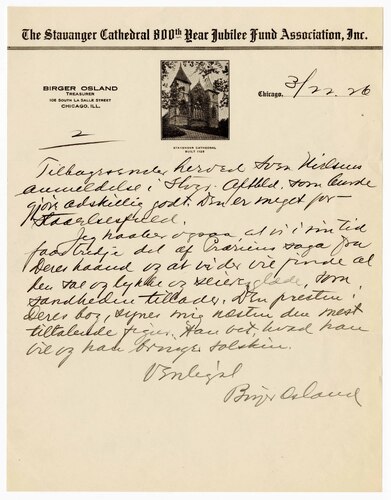 The Stavanger Cathedral 800th Year Jubilee Fund Association, Inc.
BIRGER OSLAND
TREASURER
106 SOUTH LA SALLE STREET
CHICAGO, ILL.
Chicago, 3/22.26
STAVANGER CATHEDRAL
BUILT 1125
2
Tilbagesender herved Sven Nielsens
anmeldelse i Stvgr. Aftbld. som burde
gjöre adskillig godt. Den er meget for-
Jeg haaber ogsaa at vi i sin tid
faar tredje del af Præriens saga fra
Deres haand og at vi der vil finde al
den sol og lykke og seiersglæde, som
sandheden tillader. Den presten i
Deres bog, synes mig næsten den mest
tiltalende figur. Han vet, hvad han
vil og han bringer solskin.
Venligst
Birger Osland